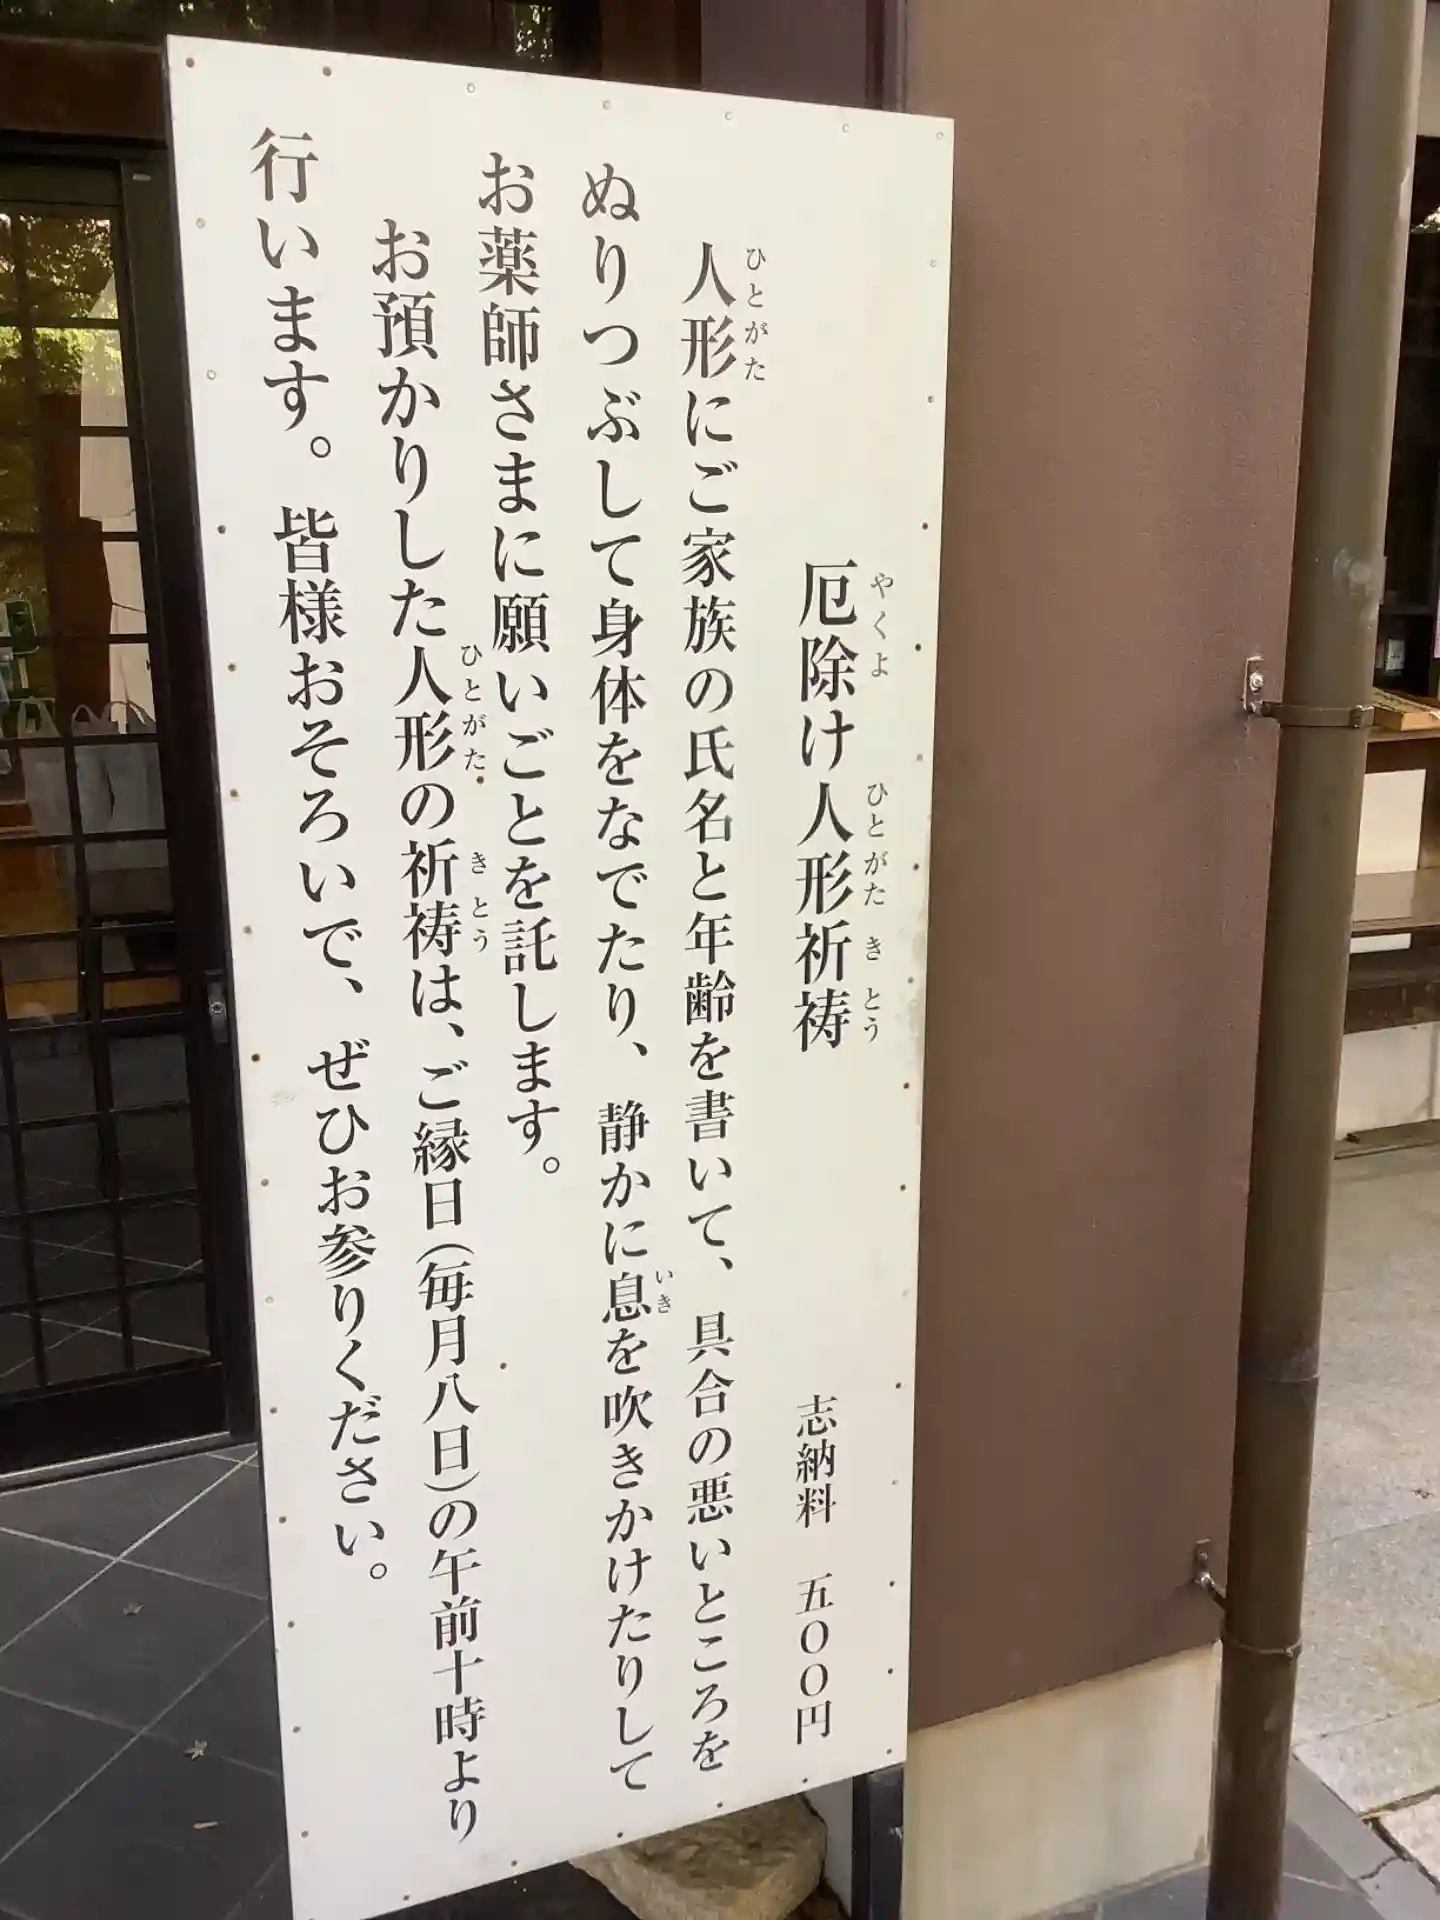 厄除け人形祈祷　志納料　五〇〇円
やくよ　ひとがた　きとう
人形にご家族の氏名と年齢を書いて、具合の悪いところを
ひとがた
ぬりつぶして身体をなでたり、静かに息を吹きかけたりして
いき
お薬師さまに願いごとを託します。
お預かりした人形の祈祷は、ご縁日（毎月八日）の午前十時より
ひとがた　きとう
行います。皆様おそろいで、ぜひお参りください。